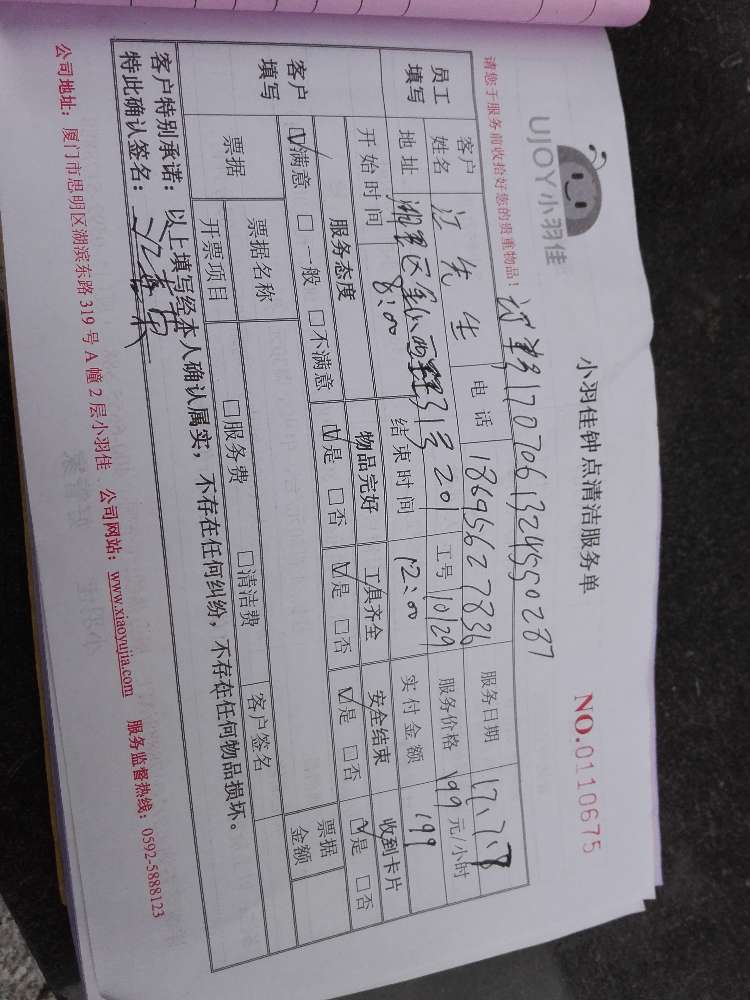 UJOY小羽佳
小羽佳钟点清洁服务单
NO.0110675
1707061324550287
请您于服务前收拾好您的贵重物品！
员工填写
客户姓名 江先生 电话 18695627836 服务日期 17.7.8
地址 湖里区 31号201 工号 10129 服务价格 199 元/小时
开始时间 8:00 结束时间 12:00 实付金额 199
客户填写
服务态度 物品完好 工具齐全 安全结束 收到卡片
☑满意 □一般 □不满意 ☑是 □否 ☑是 □否 ☑是 □否 ☑是 □否
票据 票据名称 票据金额
开票项目 □服务费 □清洁费 客户签名
客户特别承诺：以上填写经本人确认属实，不存在任何纠纷，不存在任何物品损坏。
特此确认签名：
公司地址：厦门市思明区湖滨东路319号A幢2层小羽佳 公司网站：www.xiaoyujia.com 服务监督热线：0592-5888123